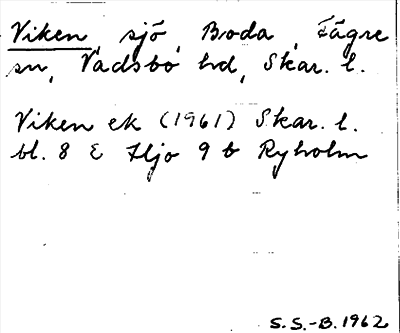 Viken, sjö, Boda, Fägre
sn, Vadsbo hd, Skar. l.
Viken ek (1961) Skar. l.
bl. 8 E Hjo 9 b Ryholm
S.S.-B. 1962